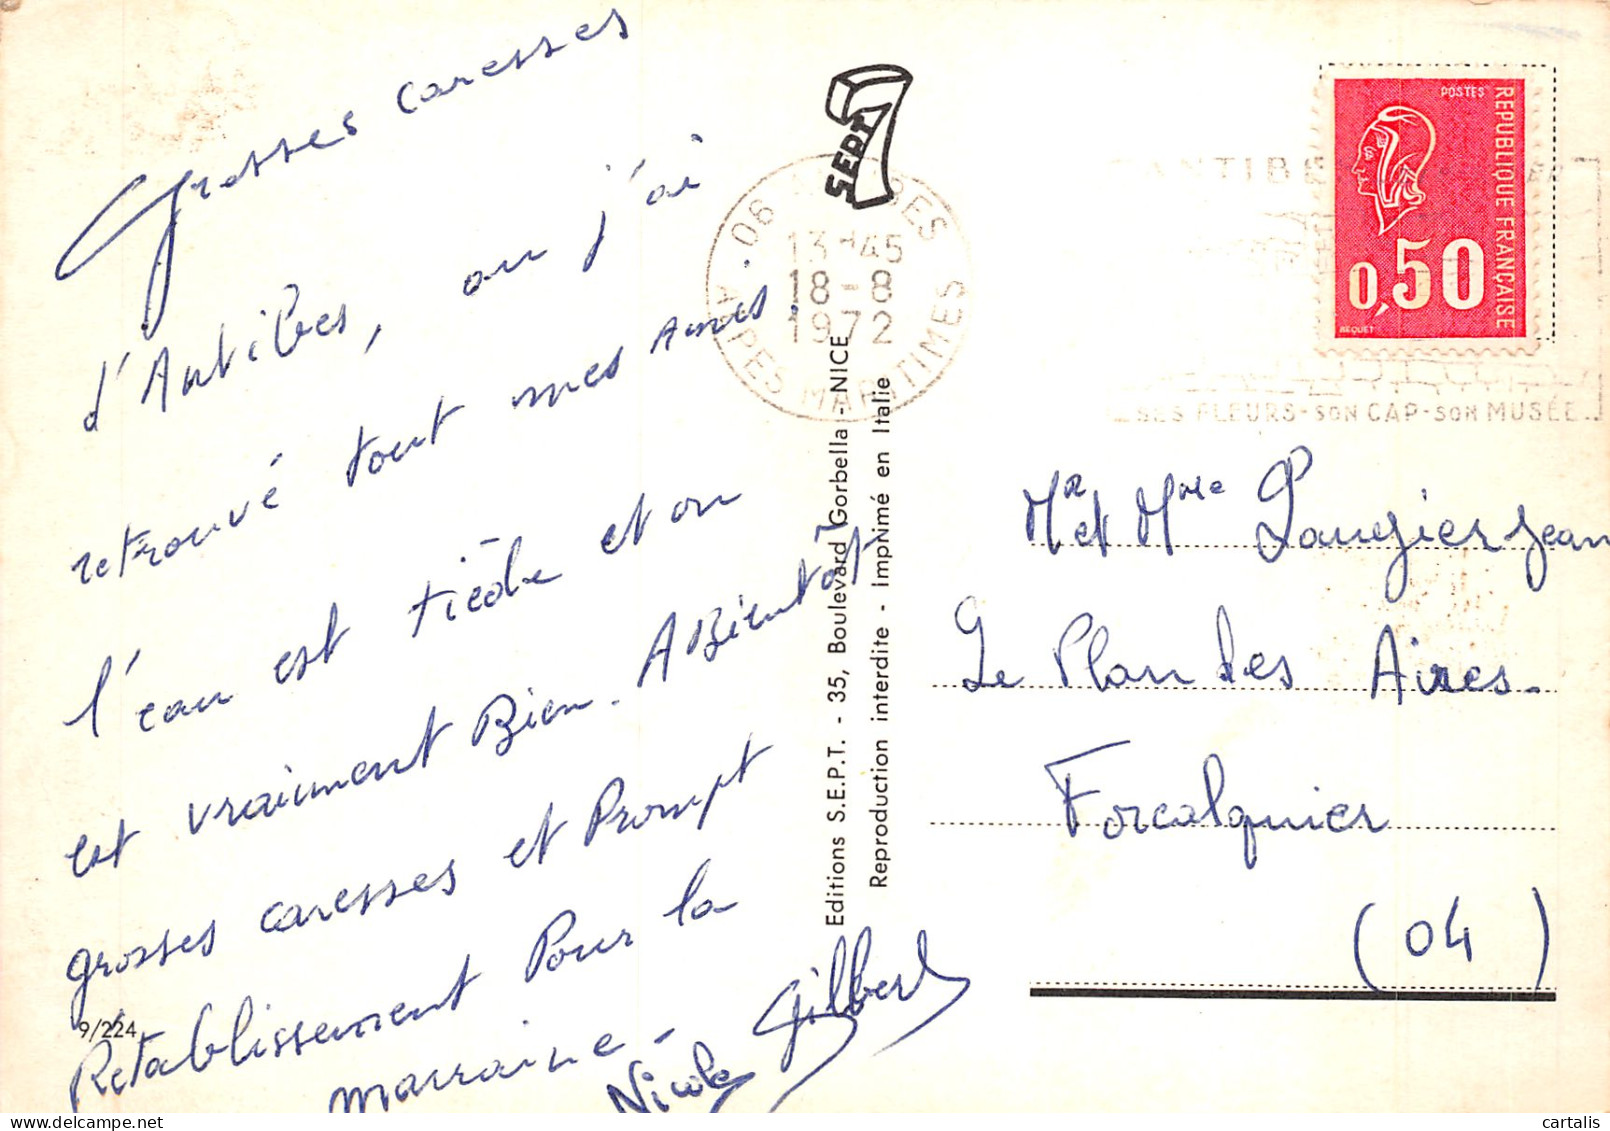 Grosses caresses
d'Antibes, ou j'ai
retrouvé tout mes Amis.
l'eau est tiède et on
est vraiment Bien. A Bientôt
grosses caresses et Prompt
Retablissement Pour la
marraine -
Nicole Gilbert
9/224
SEPT
06 ANTIBES
13H45
18-8
1972
ALPES MARITIMES
Editions S.E.P.T. - 35, Boulevard Gorbella - NICE
Reproduction interdite - ImpNimé en Italie
ANTIBES
SES FLEURS-SON CAP-SON MUSÉE
POSTES
REPUBLIQUE FRANÇAISE
0,50
BEQUET
Mr et Mme Laugier Jean
Le Plan des Aires.
Forcalquier
(04)
cartalis